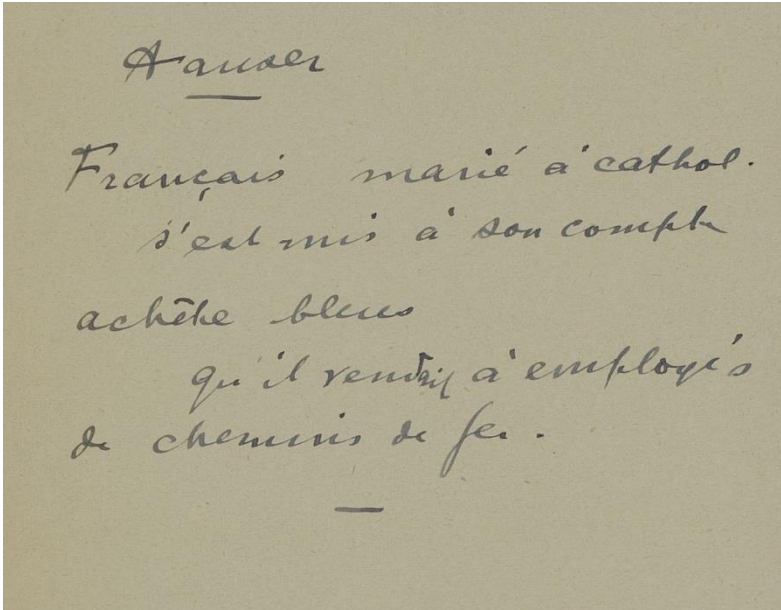 Hauser
Français marié à cathol.
s'est mis à son compte
achète bleus
qu'il vendrait à employés
de chemins de fer.